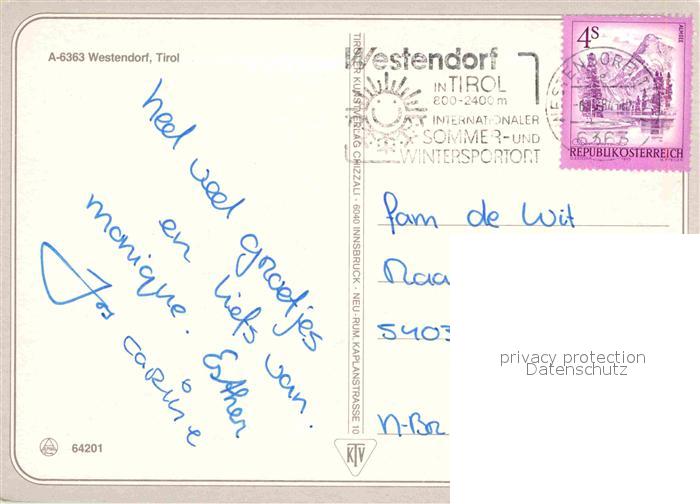 A-6363 Westendorf, Tirol
heel veel groetjes
en liefs van.
monique. Esther
Jos carine
64201
TIROLER KUNSTVERLAG CHIZZALI · 6040 INNSBRUCK · NEU-RUM, KAPLANSTRASSE 10
KTV
Westendorf
IN TIROL
800-2400 m
INTERNATIONALER
SOMMER- UND
WINTERSPORTORT
WESTENDORF
6363
4S
ALMSEE
REPUBLIK ÖSTERREICH
fam de Wit
Maa
5403
N-Br
privacy protection
Datenschutz